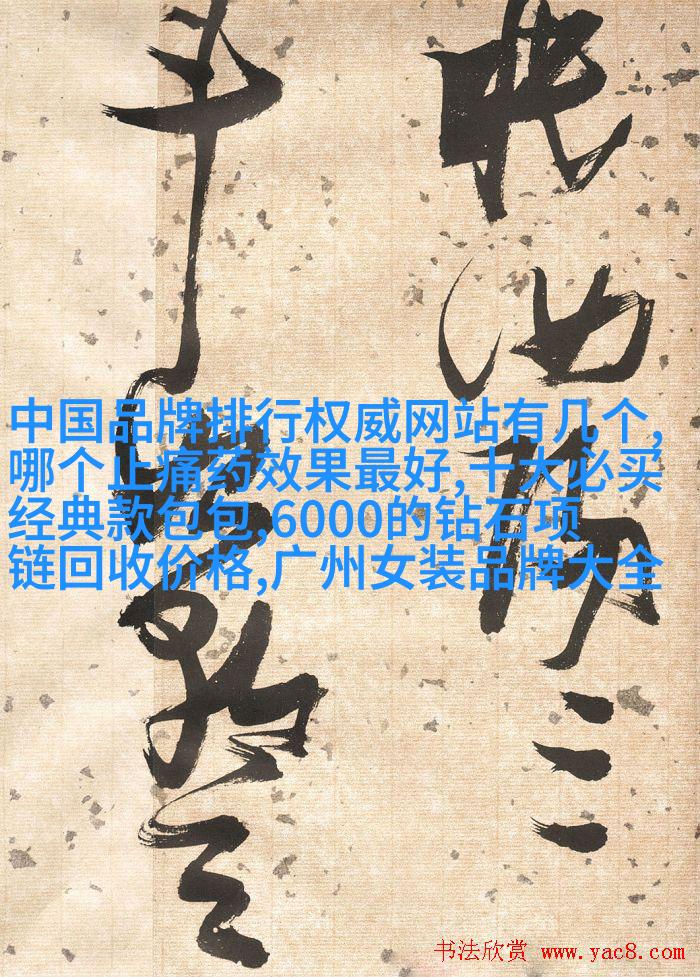 眠汝陽三
斗始朝天
中国品牌排行权威网站有几个,
哪个止痛药效果最好,十大必买
经典款包包,6000的钻石项
链回收价格,广州女装品牌大全
书法欣赏 www.yac8.com